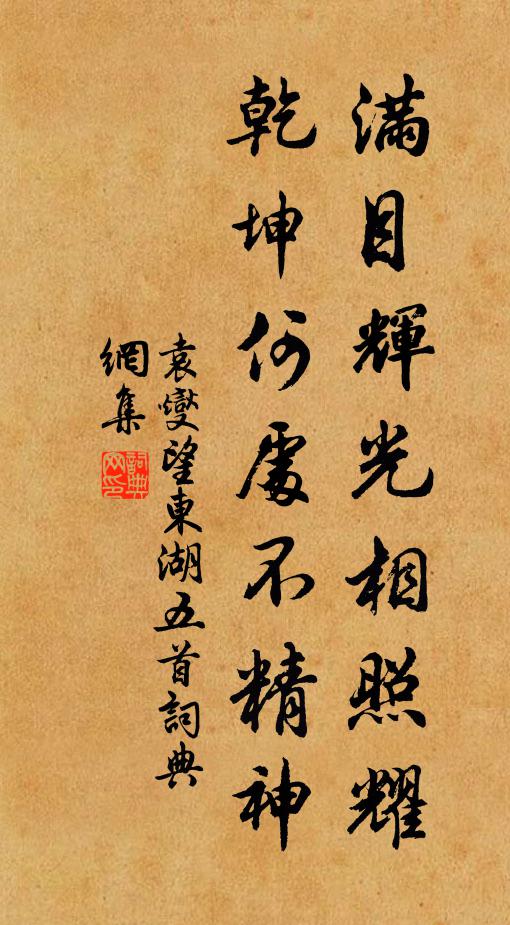 滿目輝光相照耀
乾坤何處不精神
袁燮望東湖五首詞典
網集
詞典網印